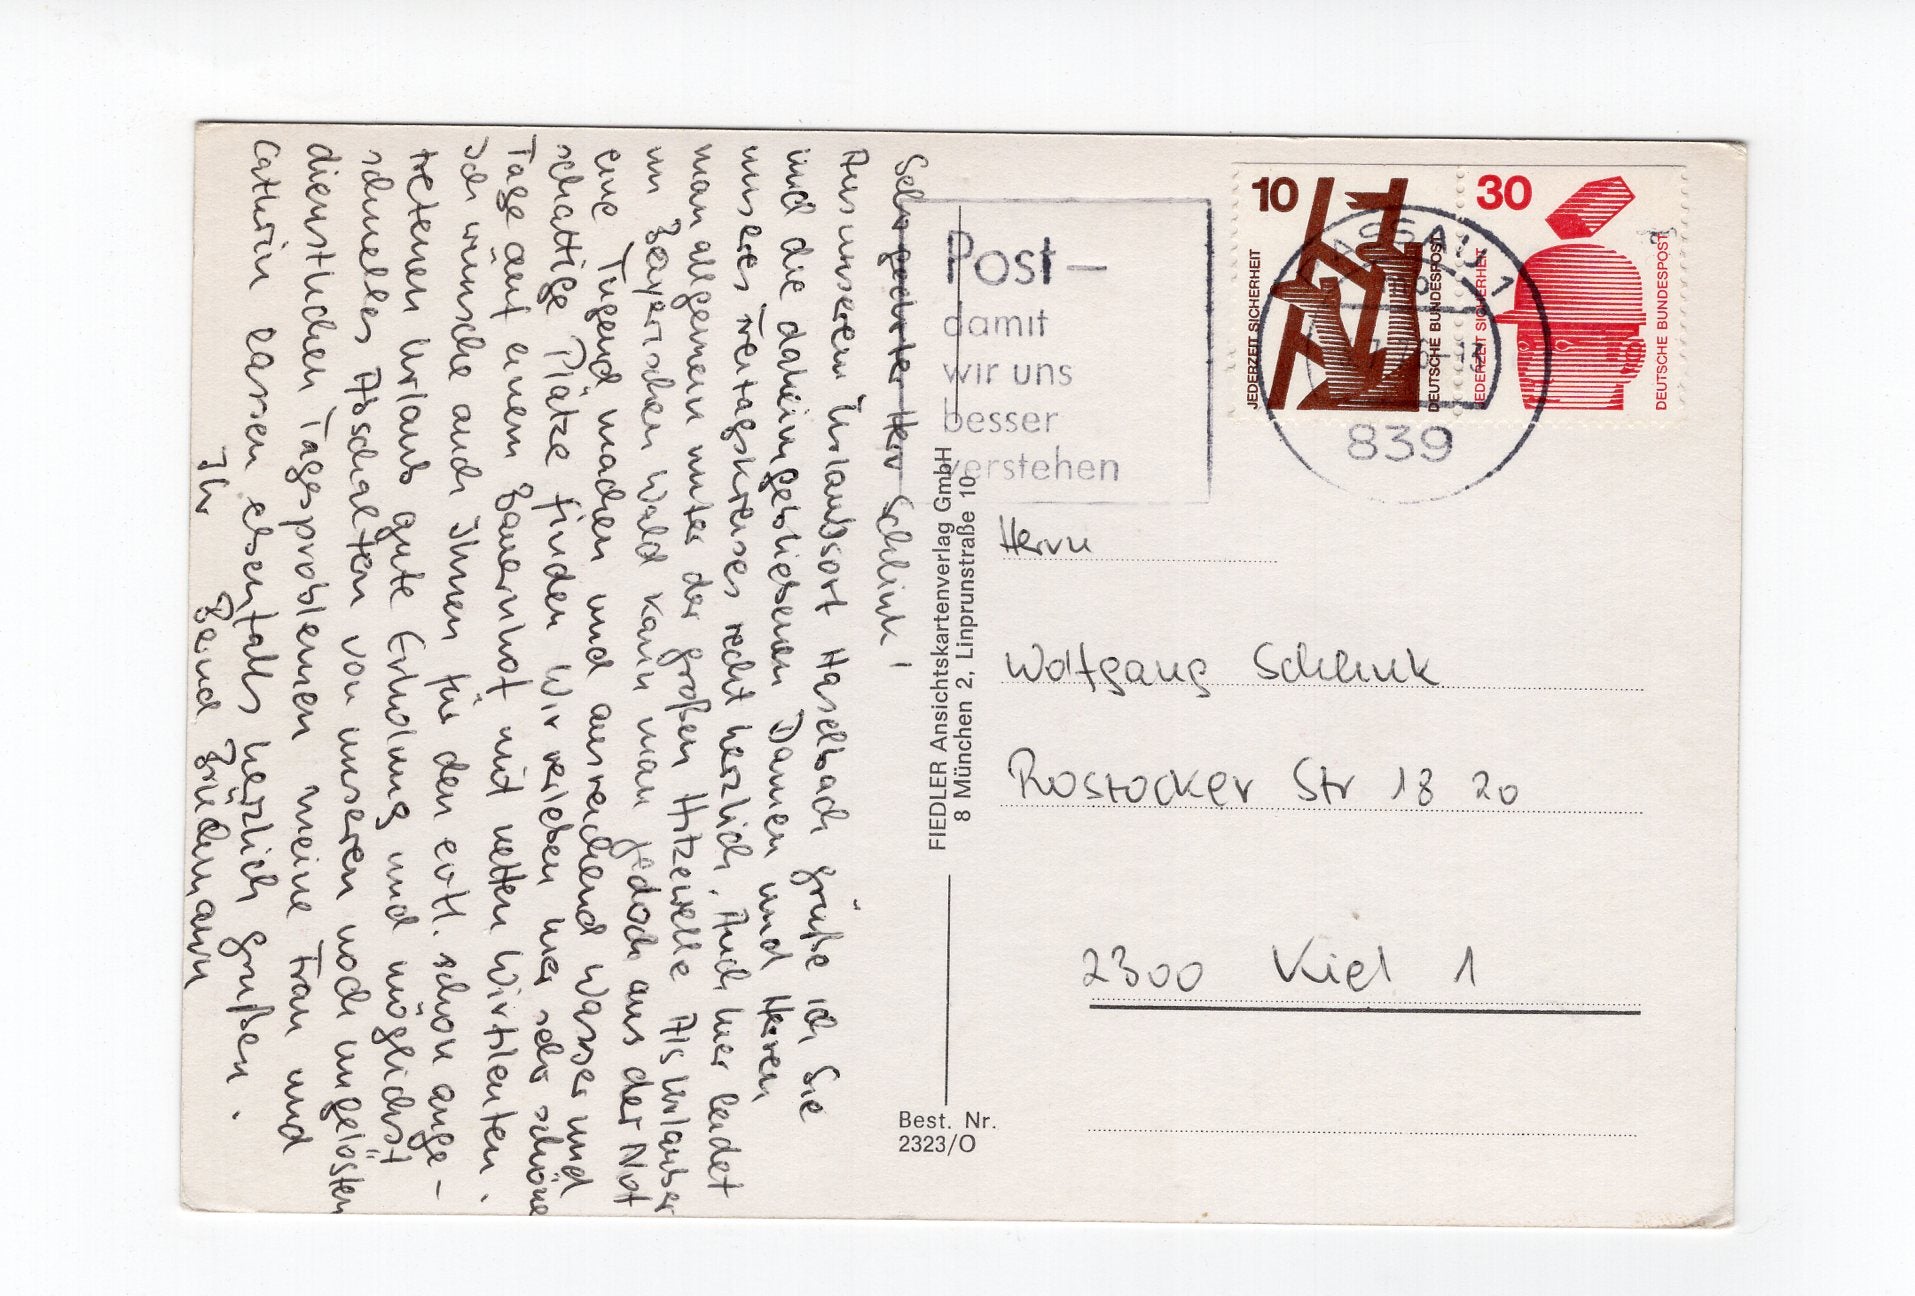 Sehr geehrter Herr Schlink!
Aus unserem Urlaubsort Haselbach grüße ich Sie
und die daheimgebliebenen Damen und Herren
unseres Freitagskreises recht herzlich. Auch hier leidet
man allgemein unter der großen Hitzewelle. Als Urlauber
im Bayerischen Wald kann man jedoch aus der Not
eine Tugend machen und ausreichend Wasser und
schattige Plätze finden. Wir verleben hier sehr schöne
Tage auf einem Bauernhof mit netten Wirtsleuten.
Ich wünsche auch Ihnen für den evtl. schon ange-
tretenen Urlaub gute Erholung und möglichst
schnelles Abschalten von unseren noch ungelösten
dienstlichen Tagesproblemen meine Frau und
Cathrin lassen ebenfalls herzlich grüßen.
Ihr Bernd Brückmann
FIEDLER Ansichtskartenverlag GmbH
8 München 2, Linprunstraße 10
Best. Nr.
2323/O
Post –
damit
wir uns
besser
verstehen
10
JEDERZEIT SICHERHEIT
DEUTSCHE BUNDESPOST
30
JEDERZEIT SICHERHEIT
DEUTSCHE BUNDESPOST
PASSAU 1
839
Herrn
Wolfgang Schlink
Rostocker Str 18 20
2300 Kiel 1